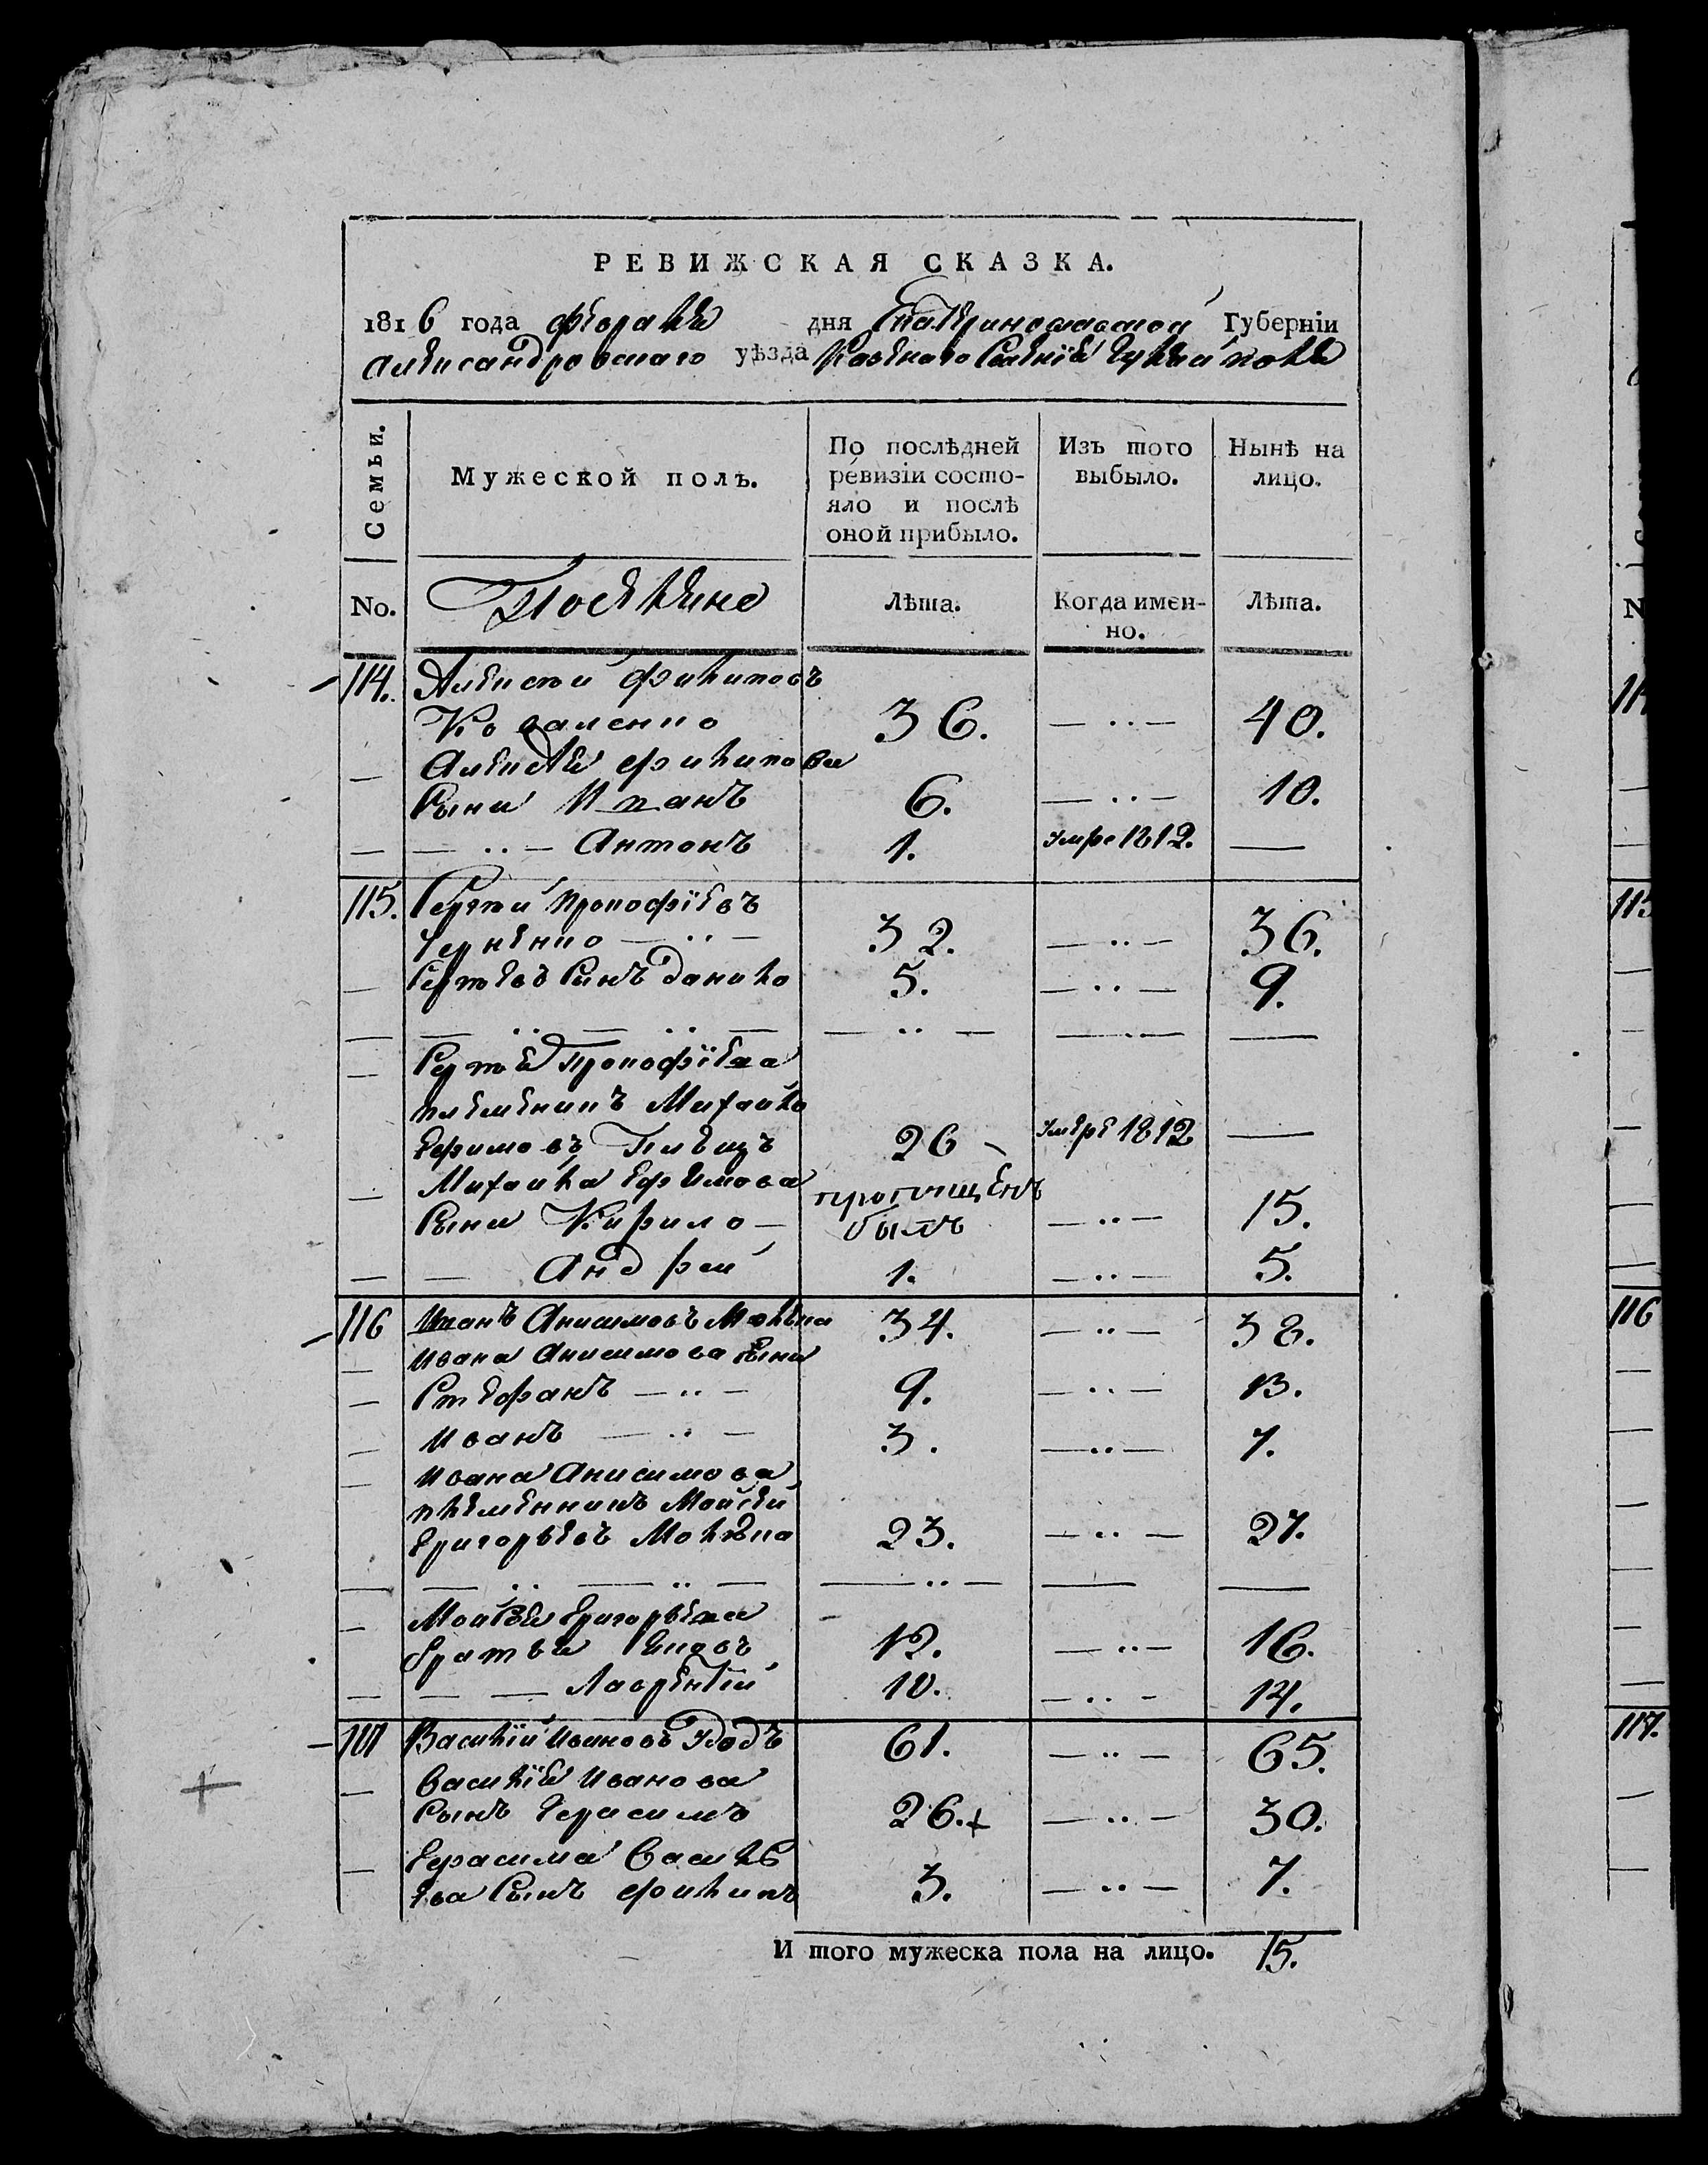 РЕВИЖСКАЯ СКАЗКА.
1816 года февраля дня Екатеринославской Губернїи
Александровскаго уѣзда Казенаго Селенїя Гуляй поля
Семьи.
Мужеской полъ.
По послѣдней ревизїи состо-
яло и послѣ
оной прибыло.
Изъ того
выбыло.
Нынѣ на
лицо.
No.
Поселяне
Лѣта.
Когда имен-
но.
Лѣта.
114. Алексѣй Филиповъ
Коваленко 36. — ·· — 40.
— Алексѣя Филипова
Сыни Иванъ 6. — ·· — 10.
— — ·· — Антонъ 1. умре 1812. —
115. Сергѣй Прокофїевъ
Черненко — ·· — 32. — ·· — 36.
— Сергѣевъ Сынъ Данило 5. — ·· — 9.
— — ·· — ·· — — ·· — — ·· — —
— Сергѣя Прокофїева
племеникъ Михайло
Ефимовъ 26 умере 1812 —
— Михайла Ефимова пропущенъ
Сыни Кирило — былъ — ·· — 15.
— — Андрей 1. — ·· — 5.
116 Иванъ Анисимовъ Молѣка 34. — ·· — 38.
— Ивана Анисимова Сыни
— Стефанъ — ·· — 9. — ·· — 13.
— Иванъ — ·· — 3. — ·· — 7.
— Ивана Анисимова
племенникъ Мойсей
Григорьевъ Молѣка 23. — ·· — 27.
— — ·· — ·· — — ·· — — —
— Мойсея Григорьева
братья 12. — ·· — 16.
— — — Лаврентїй 10. — ·· — 14.
117 Василїй Ивановъ Удодъ 61. — ·· — 65.
— Василїя Иванова
Сынъ Герасимъ 26.+ — ·· — 30.
— Герасима Василь
ева Сынъ Филипъ 3. — ·· — 7.
И того мужеска пола на лицо. 15.
N
114
115
116
117.